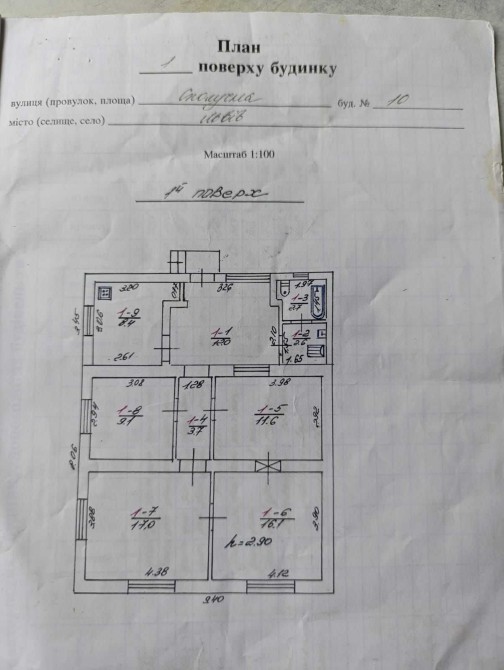 План
1 поверху будинку
вулиця (провулок, площа) Сполучна буд. № 10
місто (селище, село) Львів
Масштаб 1:100
1й поверх
3.20
3.26
1.97
1-3
2.7
1-9
8.4
1-1
1-2
2.6
3.45
2.10
1.65
2.61
3.08
1.28
3.98
1-8
9.1
1-4
3.7
1-5
11.6
2.97
2.92
8.06
1-7
17.0
1-6
16.1
3.88
3.90
h=2.90
4.38
4.12
9.40